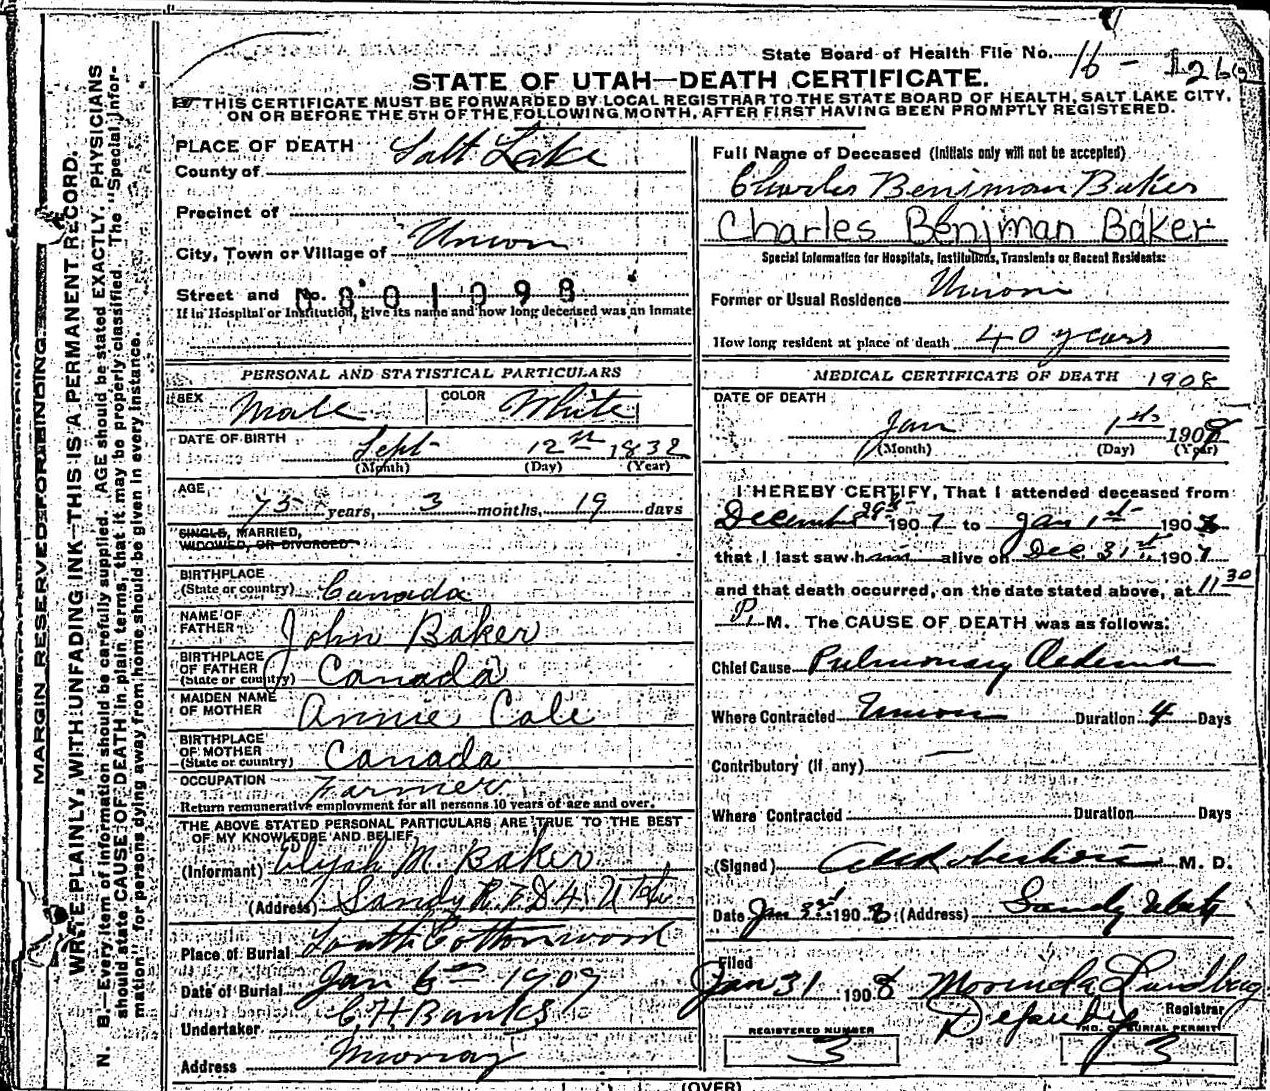 State Board of Health File No. 16 - 126
STATE OF UTAH—DEATH CERTIFICATE.
THIS CERTIFICATE MUST BE FORWARDED BY LOCAL REGISTRAR TO THE STATE BOARD OF HEALTH, SALT LAKE CITY,
ON OR BEFORE THE 5TH OF THE FOLLOWING MONTH, AFTER FIRST HAVING BEEN PROMPTLY REGISTERED.
MARGIN RESERVED FOR BINDING.
WRITE PLAINLY, WITH UNFADING INK—THIS IS A PERMANENT RECORD.
N. B.—Every item of information should be carefully supplied. AGE should be stated EXACTLY. PHYSICIANS
should state CAUSE OF DEATH in plain terms, that it may be properly classified. The "Special Infor-
mation" for persons dying away from home should be given in every instance.
PLACE OF DEATH
County of Salt Lake
Precinct of
City, Town or Village of Union
Street and No. 0801098
If in Hospital or Institution, give its name and how long deceased was an inmate
PERSONAL AND STATISTICAL PARTICULARS
SEX Male COLOR White
DATE OF BIRTH Sept 12th 1832
(Month) (Day) (Year)
AGE 75 years, 3 months, 19 days
SINGLE, MARRIED,
WIDOWED, OR DIVORCED
BIRTHPLACE
(State or country) Canada
NAME OF
FATHER John Baker
BIRTHPLACE
OF FATHER
(State or country) Canada
MAIDEN NAME
OF MOTHER Annie Cole
BIRTHPLACE
OF MOTHER
(State or country) Canada
OCCUPATION Farmer
Return remunerative employment for all persons 10 years of age and over.
THE ABOVE STATED PERSONAL PARTICULARS ARE TRUE TO THE BEST
OF MY KNOWLEDGE AND BELIEF
(Informant) Elijah M. Baker
(Address) Sandy R.F.D 4. Utah
Place of Burial South Cottonwood
Date of Burial Jan 6th 1909
Undertaker C H Banks
Address Murray
Full Name of Deceased (Initials only will not be accepted)
Charles Benjman Baker
Charles Benjman Baker
Special Information for Hospitals, Institutions, Transients or Recent Residents:
Former or Usual Residence Union
How long resident at place of death 40 years
MEDICAL CERTIFICATE OF DEATH 1908
DATE OF DEATH
Jan 1st 1908
(Month) (Day) (Year)
I HEREBY CERTIFY, That I attended deceased from
December 29th 1907 to Jan 1st 1908
that I last saw him alive on Dec. 31st 1907
and that death occurred, on the date stated above, at 11 30
P. M. The CAUSE OF DEATH was as follows:
Chief Cause Pulmonary Oedema
Where Contracted Union Duration 4 Days
Contributory (if any) —
Where Contracted Duration Days
(Signed) M. D.
Date Jan 3rd 1908 (Address) Sandy Utah
Filed
Jan 31 1908 Morinda Lundberg
Deputy Registrar
REGISTERED NUMBER NO. OF BURIAL PERMIT
3 3
(OVER)